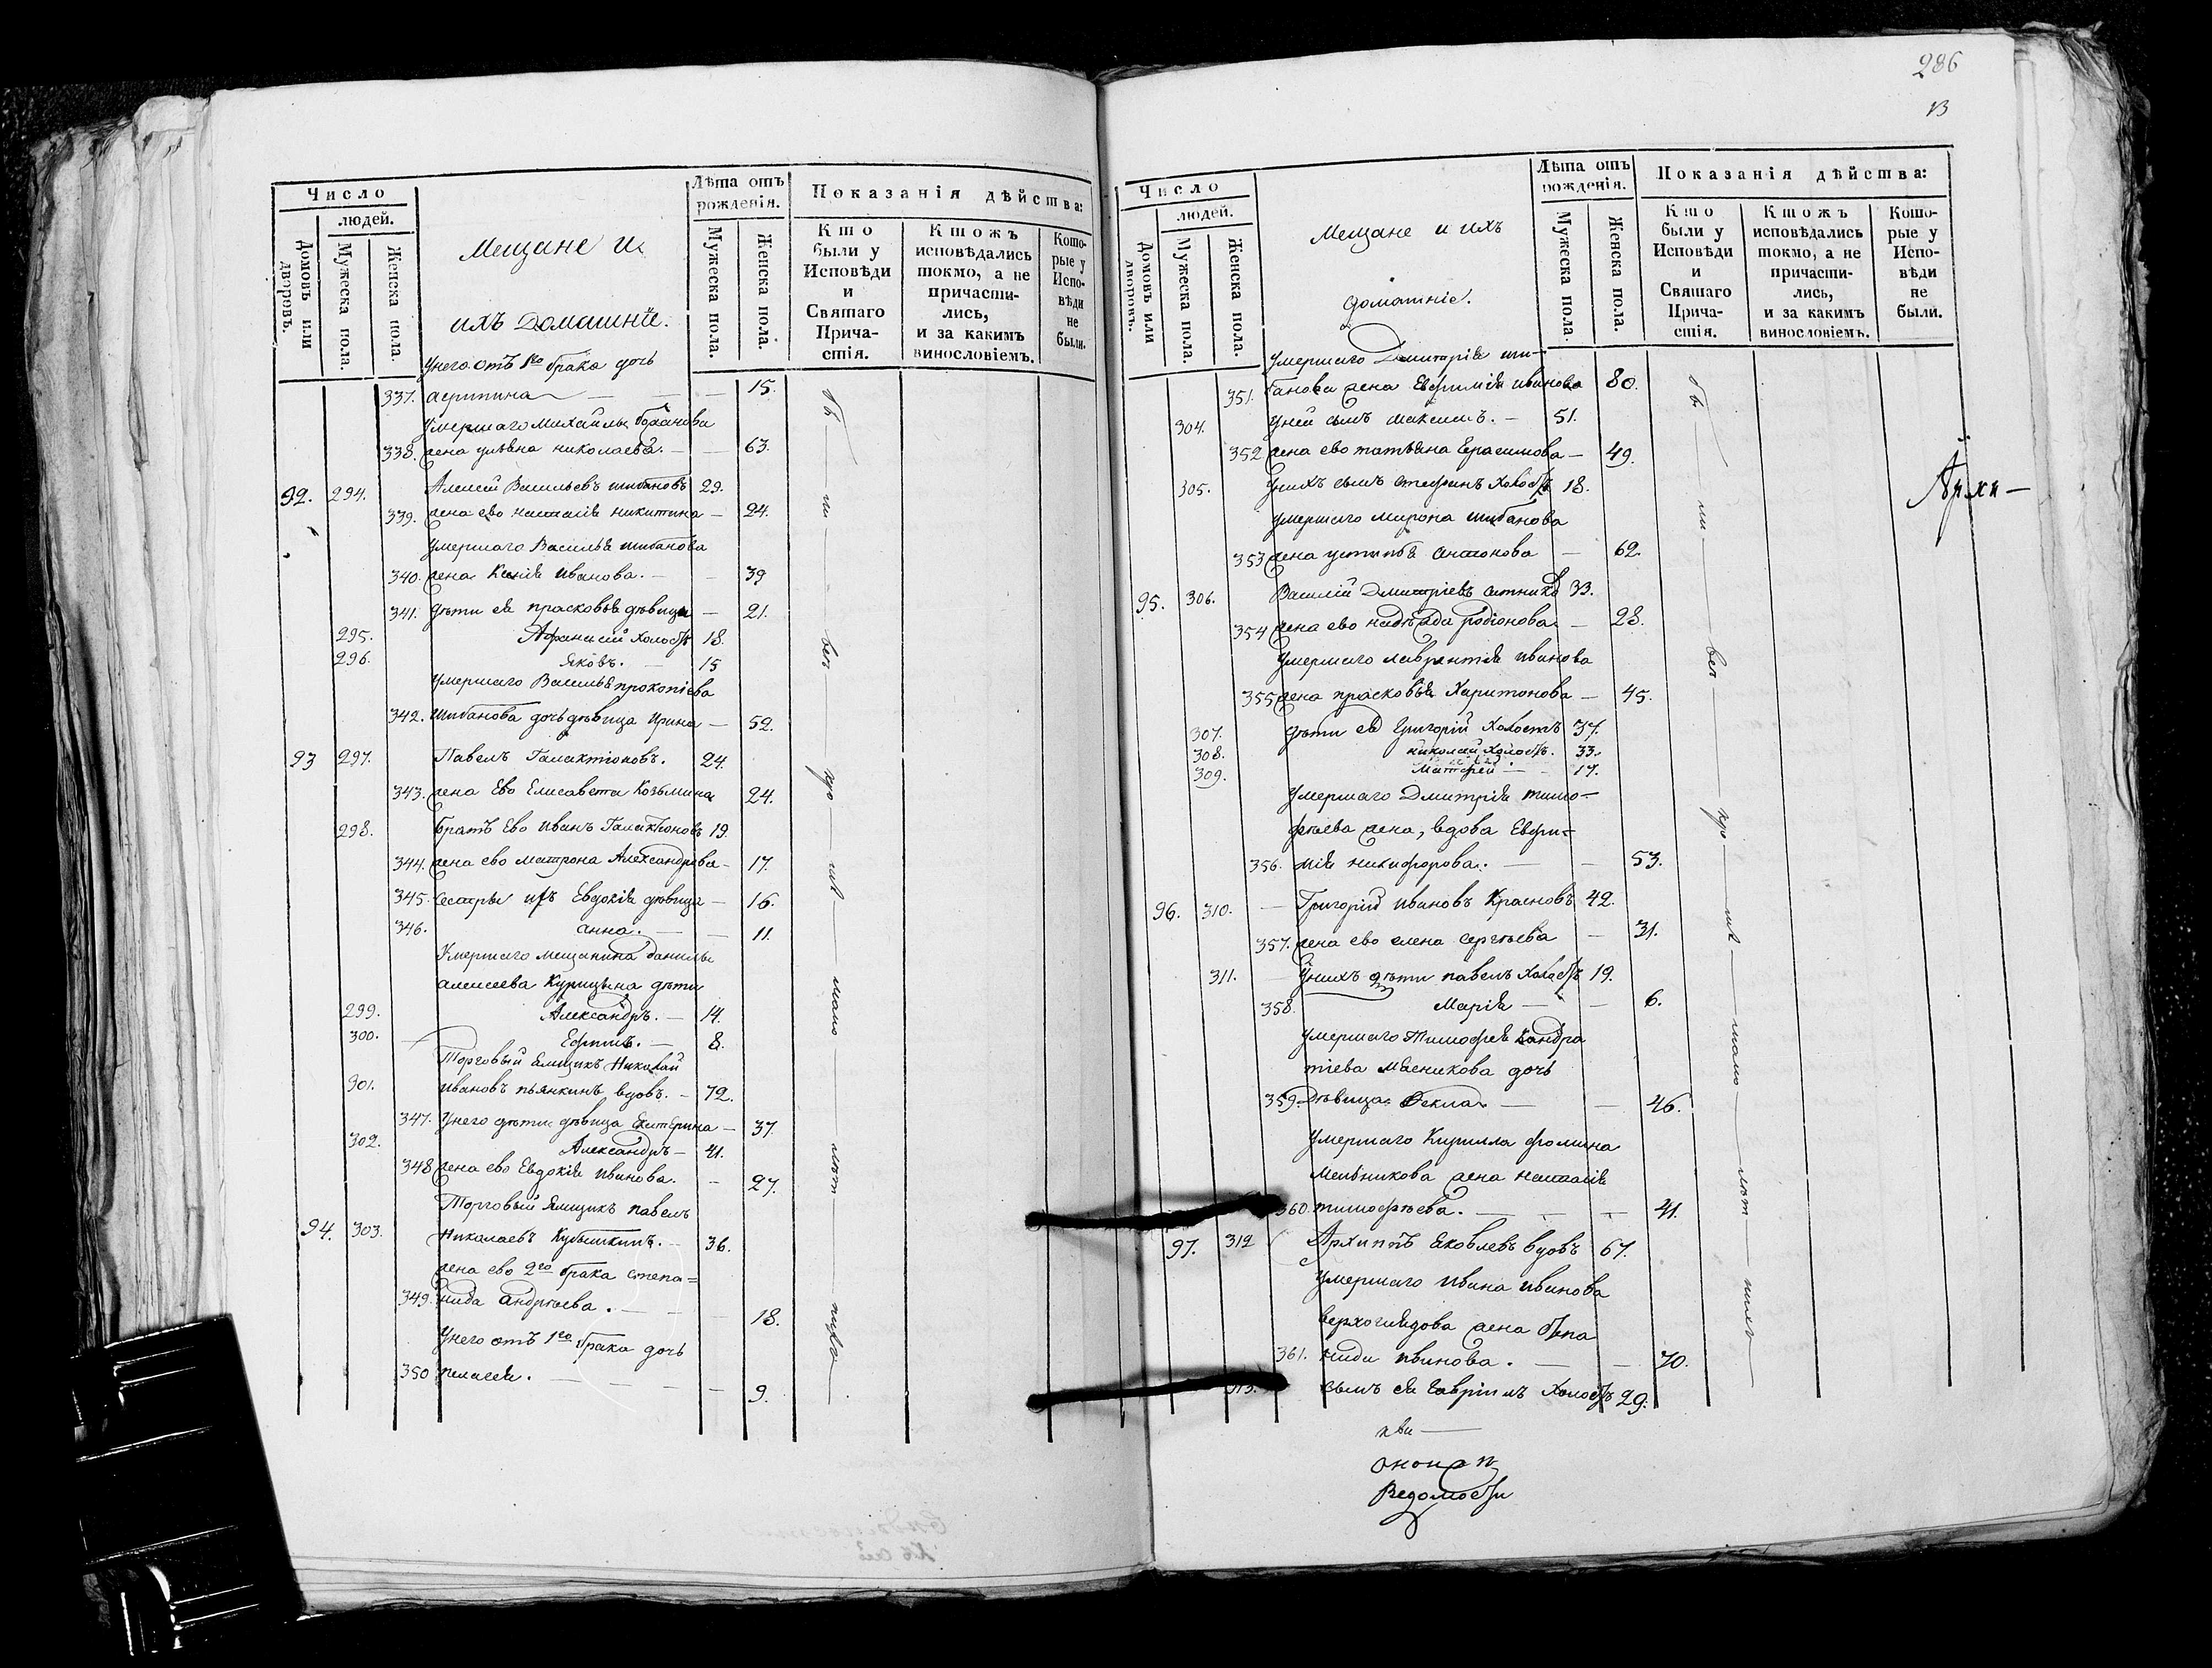 286
13
Число
людей.
Домовъ или дворовъ.
Мужеска пола.
Женска пола.
Мещане и
ихъ Домашнiи.
Лѣта отъ рожденiя.
Мужеска пола.
Женска пола.
Показанiя дѣйства:
Кто были у Исповѣди и Святаго Прича-стiя.
Ктожъ исповѣдались токмо, а не причасти-лись, и за какимъ винословiемъ.
Кото-рые у Испо-вѣди не были.
Унего отъ 1го брака дочь
337. — 15.
умершаго Михайлы
338. жена ульяна николаева. — 63.
92. 294. Алексей Васильевъ шибановъ 29.
339. жена ево наталiя никитина — 24.
умершаго Василья шибанова
340. жена Ксенiя иванова. — 39
341. дѣти ея прасковья дѣвица — 21.
295. Афанасий холостъ 18.
296. яковъ. — 15
умершаго Василья прокопiева
342. шибанова дочь дѣвица ирина — 52.
93 297. Павелъ Галактiоновъ. 24.
343. жена Ево Елисавета Козьмина 24.
298. братъ Ево иванъ Галактiоновъ 19.
344. жена ево матрона Александрова — 17.
345. сестры ихъ Евдокiя дѣвица — 16.
346. анна. — 11.
Умершаго мещанина данилы
алексеева Курицына дѣти
299. Александръ. — 14.
300. Ефимъ. — 8.
Торговый ямщикъ Николай
301. ивановъ пьянкинъ вдовъ. — 72.
347. Унего дѣти дѣвица Екатерина — 37.
302. Александръ — 41.
348 жена ево Евдокiя иванова. — 27.
Торговый ямщикъ павелъ
94. 303. Николаевъ Кубышкинъ. — 36.
жена ево 2го брака степа=
349. нида андрѣева. — 18.
Унего отъ 1го брака дочь
350 пелагея. — 9.
Число
людей.
Домовъ или дворовъ.
Мужеска пола.
Женска пола.
Мещане и ихъ
домашнiе.
Лѣта отъ рожденiя.
Мужеска пола
Женска пола.
Показанiя дѣйства:
Кто были у Исповѣди и Святаго Прича-стiя.
Ктожъ исповѣдались токмо, а не причасти-лись, и за какимъ винословiемъ.
Кото-рые у Испо-вѣди не были.
умершаго Димитрiя ши-
351. банова жена Евфимiя иванова 80.
304. уней сынъ максимъ. — 51.
352 жена ево татьяна Герасимова — 49.
305. Унихъ сынъ стефанъ холостъ 18.
умершаго мирона шибанова
353 жена устинья антонова — 62.
95. 306. Василiй Димитрiевъ ситников 33.
354 жена ево надѣжда родiонова — 28.
умершаго лаврентiя иванова
355 жена прасковья Харитонова — 45.
307. дѣти ея Григорiй Холостъ 37.
308. николай холостъ. 33.
309. Матфей — 17.
умершаго Димитрiя тимо-
фѣева жена, вдова Евфи=
356. мiя никифорова. — 53.
96. 310. Григорiй ивановъ Красновъ 42.
357. жена ево елена сергѣева — 31.
311. Унихъ дѣти павелъ холостъ 19.
358. Марiя — 6.
умершаго Тимофея Кондра
тiева мясникова дочь
359. Дѣвица Фекла — 46.
умершаго Кирилла фомина
Мельникова жена наталiя
360. тимофѣева. — 41.
97. 312 Архиппъ яковлевъ вдовъ 67.
умершаго ивана иванова
верхоглядова жена степа
361. нида иванова. — 70.
313. сынъ ея Гаврiилъ холостъ 29.
Архи-